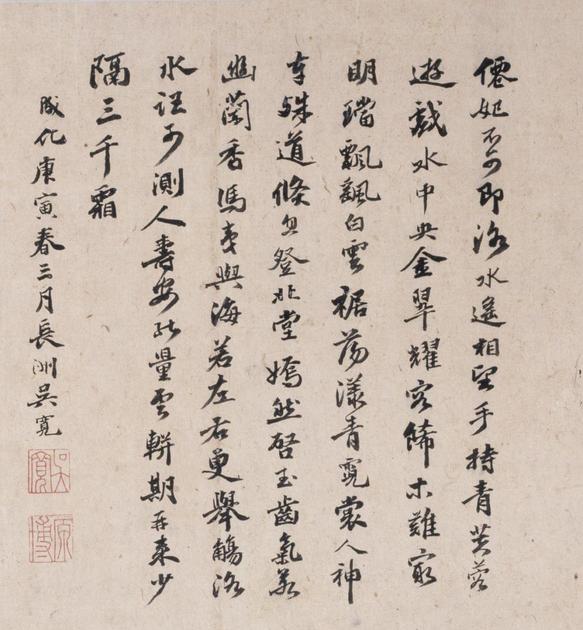 僊妃不可即洛水遙相望手持青芙蓉
遊戲水中央金翠耀容飾木難㝡
明璫飄颻白雲裾蕩漾青霓裳人神
本殊道倏忽登北堂嫣然啓玉齒氣若
幽蘭香馮夷與海若左右更舉觴洛
水詎可測人壽安能量雲軿期再來少
隔三千霜
成化庚寅春三月長洲吳寬
吳寬
原博